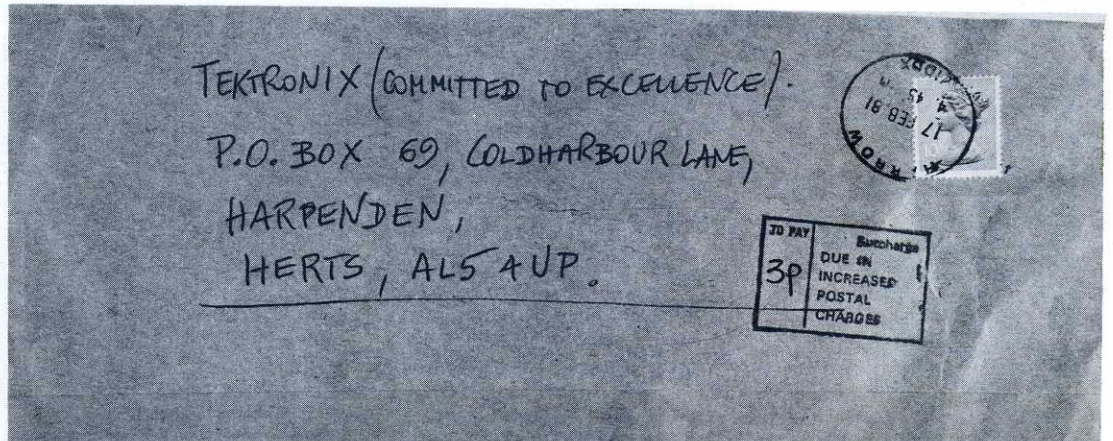 TEKTRONIX (COMMITTED TO EXCELLENCE).
P.O. BOX 69, COLDHARBOUR LANE,
HARPENDEN,
HERTS, AL5 4UP.
17 FEB 81
TO PAY
3p
Surcharge
DUE ON
INCREASED
POSTAL
CHARGES